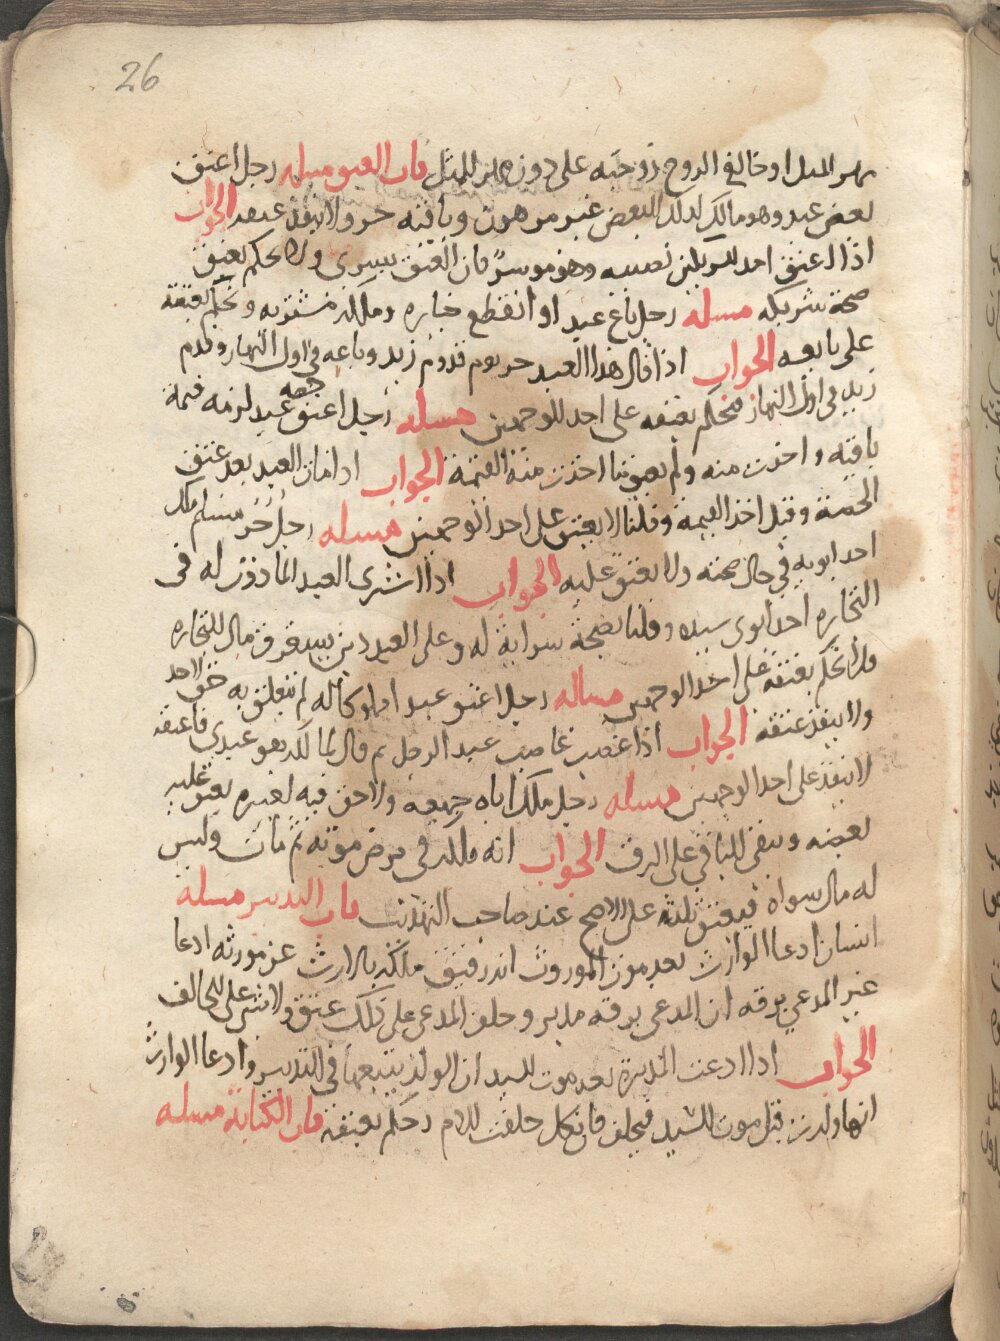 26
بمهر المثل او خالف الزوج زوجته على دون مهر المثل باب العتق مسله رجل اعتق
بعض عبد وهو مالك لذلك البعض غير مرهون وباقيه حر ولا ينفذ عتقه الجواب
اذا اعتق احد الشريكين نصيبه وهو موسر فان العتق يسرى ولا يحكم بعتق
حصة شريكه مسله رجل باع عبدا وانقطع خياره وملكه مشتريه ونحكم بعتقه
على بايعه الجواب اذا قال هذا العبد حر يوم قدوم زيد وباعه في اول النهار وقدم
زيد في اول النهار فنحكم بعتقه على احد الوجهين مسله رجل اعتق حصة عبد لزمه قيمة
باقيه واخذت منه ولم يعتق ما اخذت منه القيمة الجواب اذا مات العبد بعد عتق
الحصة وقبل اخذ القيمة وقلنا لا يعتق على احد الوجهين مسله رجل حر مسلم ملك
احد ابويه في حال صحته ولا يعتق عليه الجواب اذا اشترى العبد الماذون له فى
التجاره احد ابوى سيده وقلنا بصحة شرايه له وعلى العبد دين يستغرق مال التجاره
فلا نحكم بعتقه على احد الوجهين مساله رجل اعتق عبدا مملوكا له لم يتعلق به حق لاحد
ولا ينفذ عتقه الجواب اذا غصب غاصب عبد الرجل ثم قال لمالكه هو عبدى فاعتقه
لا ينفذ على احد الوجهين مسله رجل ملك اباه جميعه ولا حق فيه لغيره يعتق عليه
بعضه ويبقى الباقي على الرق الجواب انه ملكه في مرض موته ثم مات وليس
له مال سواه فيعتق ثلثه على الاصح عند صاحب التهذيب باب التدبير مسله
انسان ادعا الوارث بعد موت الموروث انه رقيق ملكه بالارث عن مورثه ادعا
غير المدعي برقه ان المدعى برقه مدبر وحلف المدعى على ذلك عتق ولا شى على الحالف
الجواب اذا ادعت المدبرة بعد موت السيد ان الولد يتبعها في التدبير وادعا الوارث
انها ولدت قبل موت السيد فيحلف فان نكل حلفت الام وحكم بعتقه باب الكتابة مسله